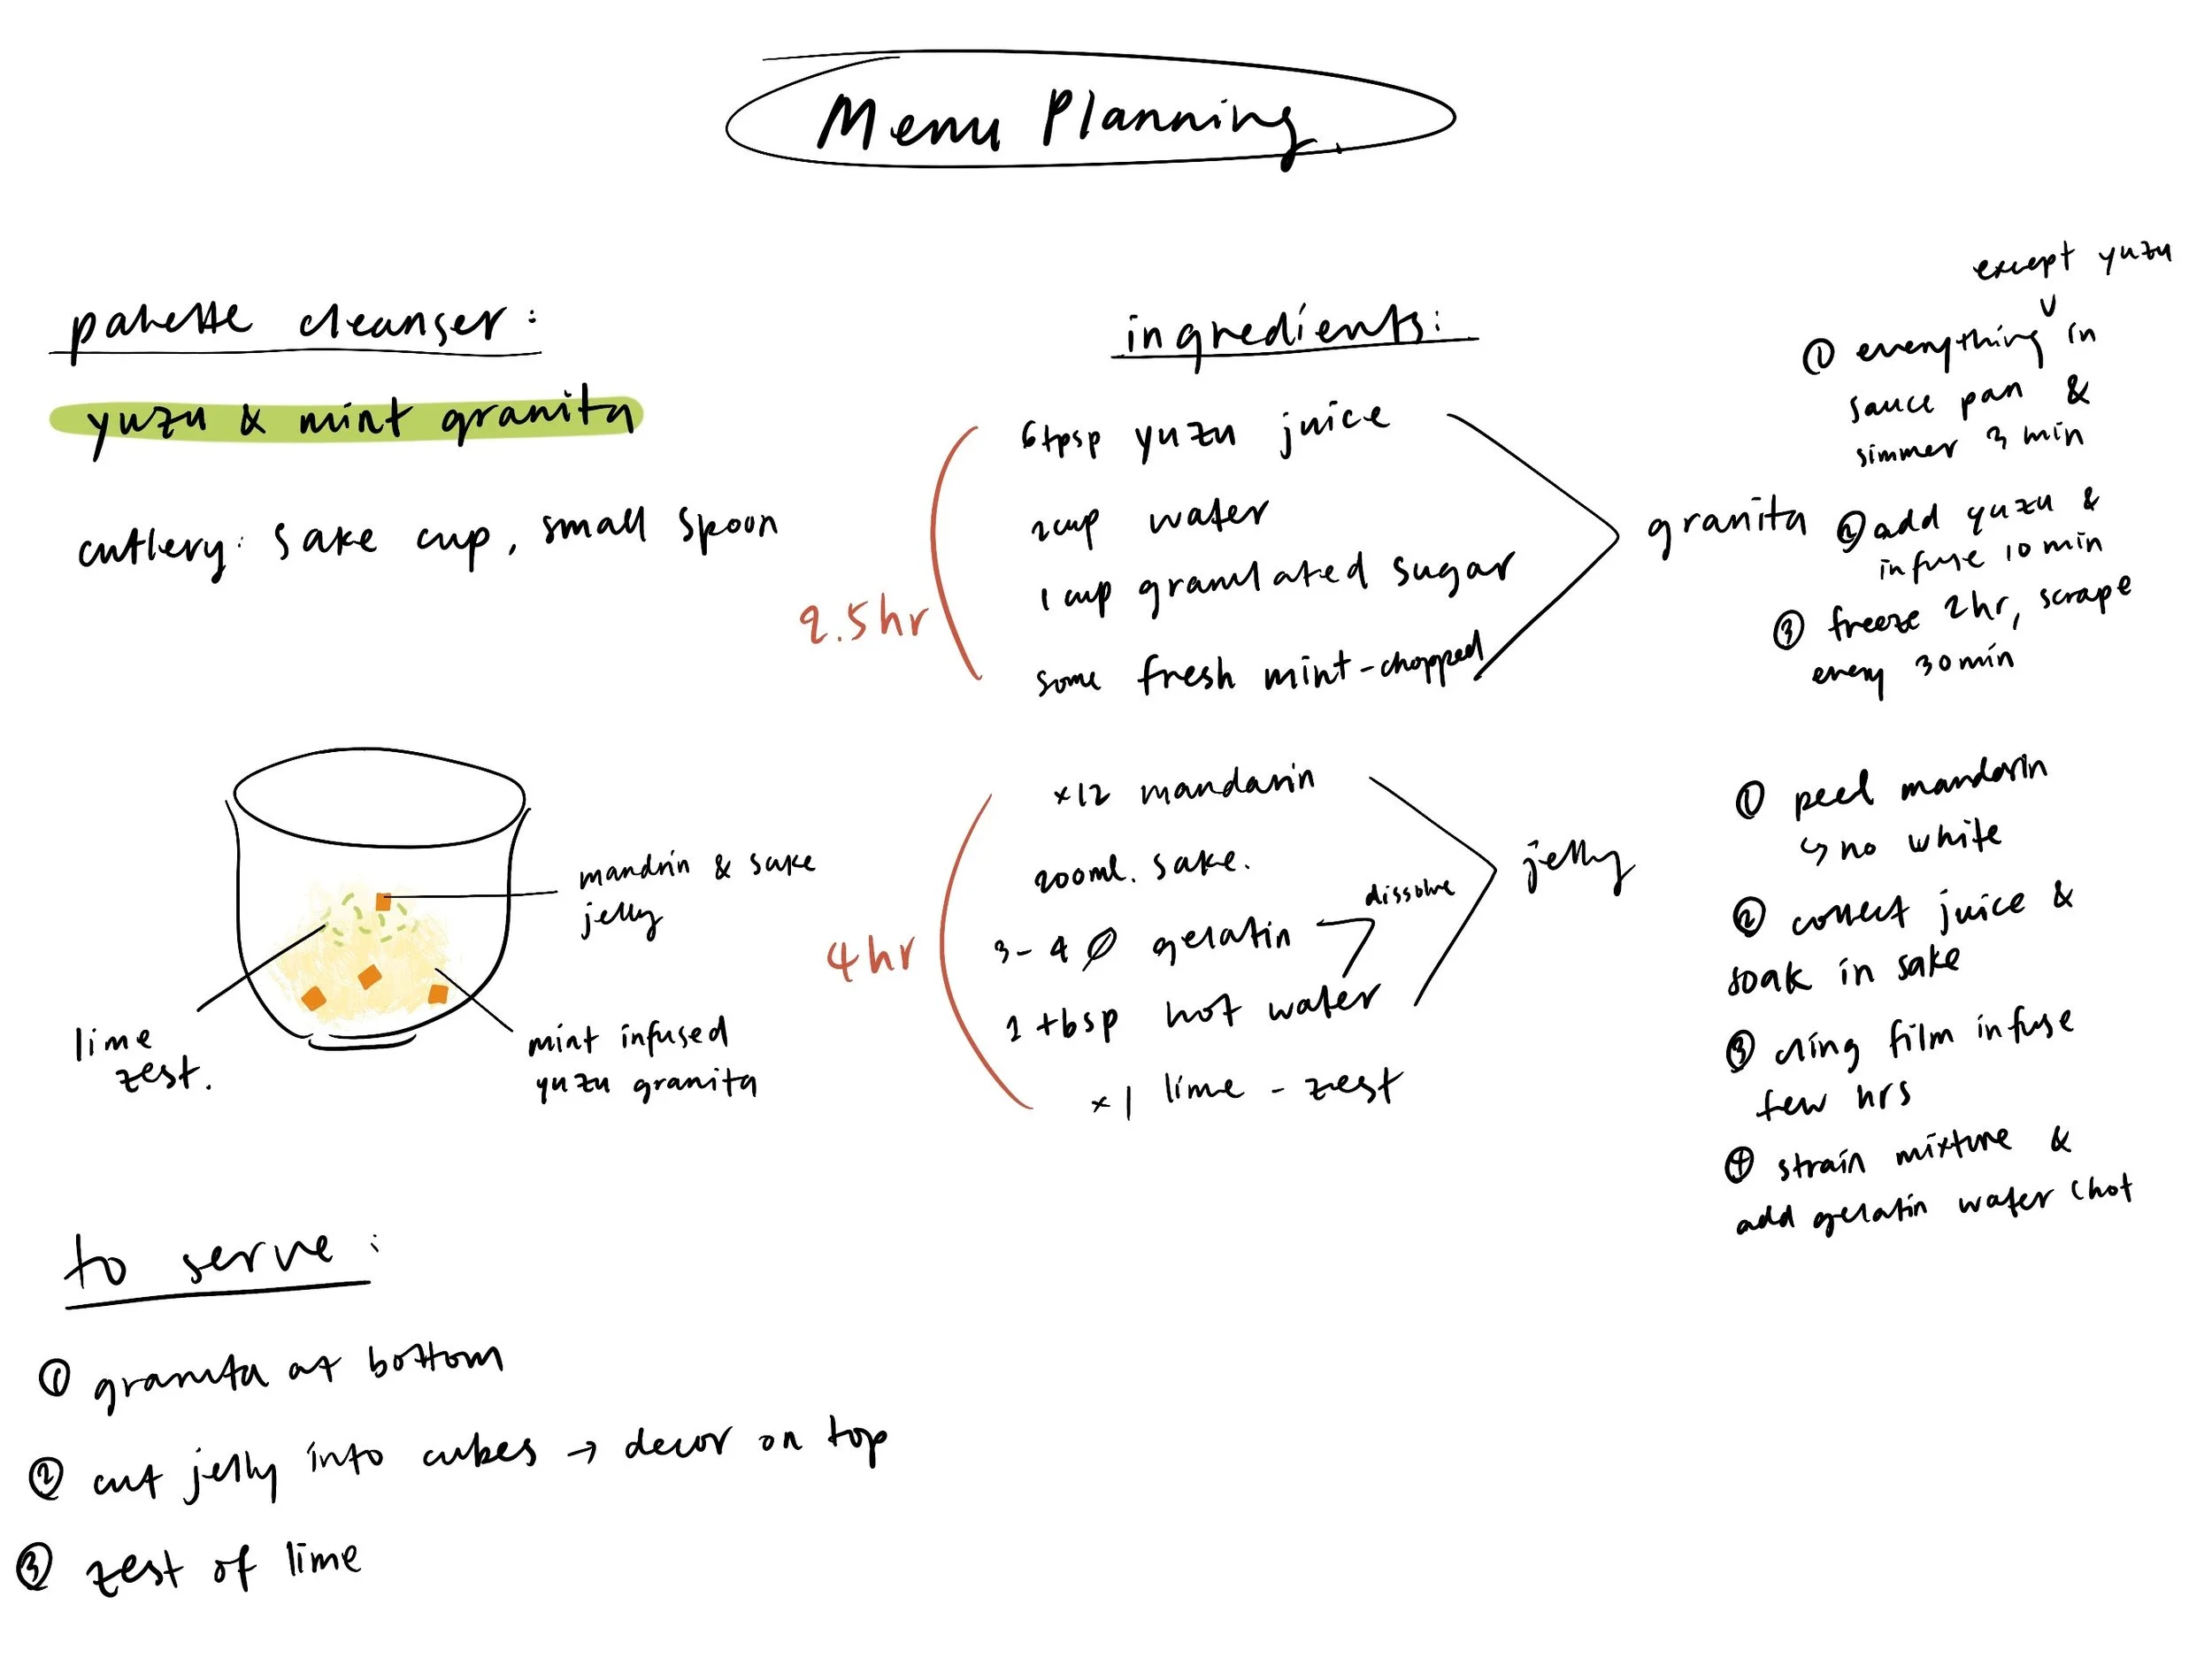 Menu Planning.
palette cleanser:
yuzu & mint granita
cutlery: sake cup, small spoon
mandrin & sake
jelly
lime
zest.
mint infused
yuzu granita
to serve:
① granita at bottom
② cut jelly into cubes → decor on top
③ zest of lime
ingredients:
2.5hr
6tpsp yuzu juice
2cup water
1 cup granulated sugar
some fresh mint-chopped
granita
except yuzu
① everything in
sauce pan &
simmer 3 min
② add yuzu &
infuse 10 min
③ freeze 2hr, scrape
every 30min
4hr
×12 mandarin
200ml. sake.
3-4 gelatin
dissolve
1 tbsp hot water
×1 lime - zest
jelly
① peel mandarin
↳ no white
② collect juice &
soak in sake
③ cling film infuse
few hrs
④ strain mixture &
add gelatin water (hot